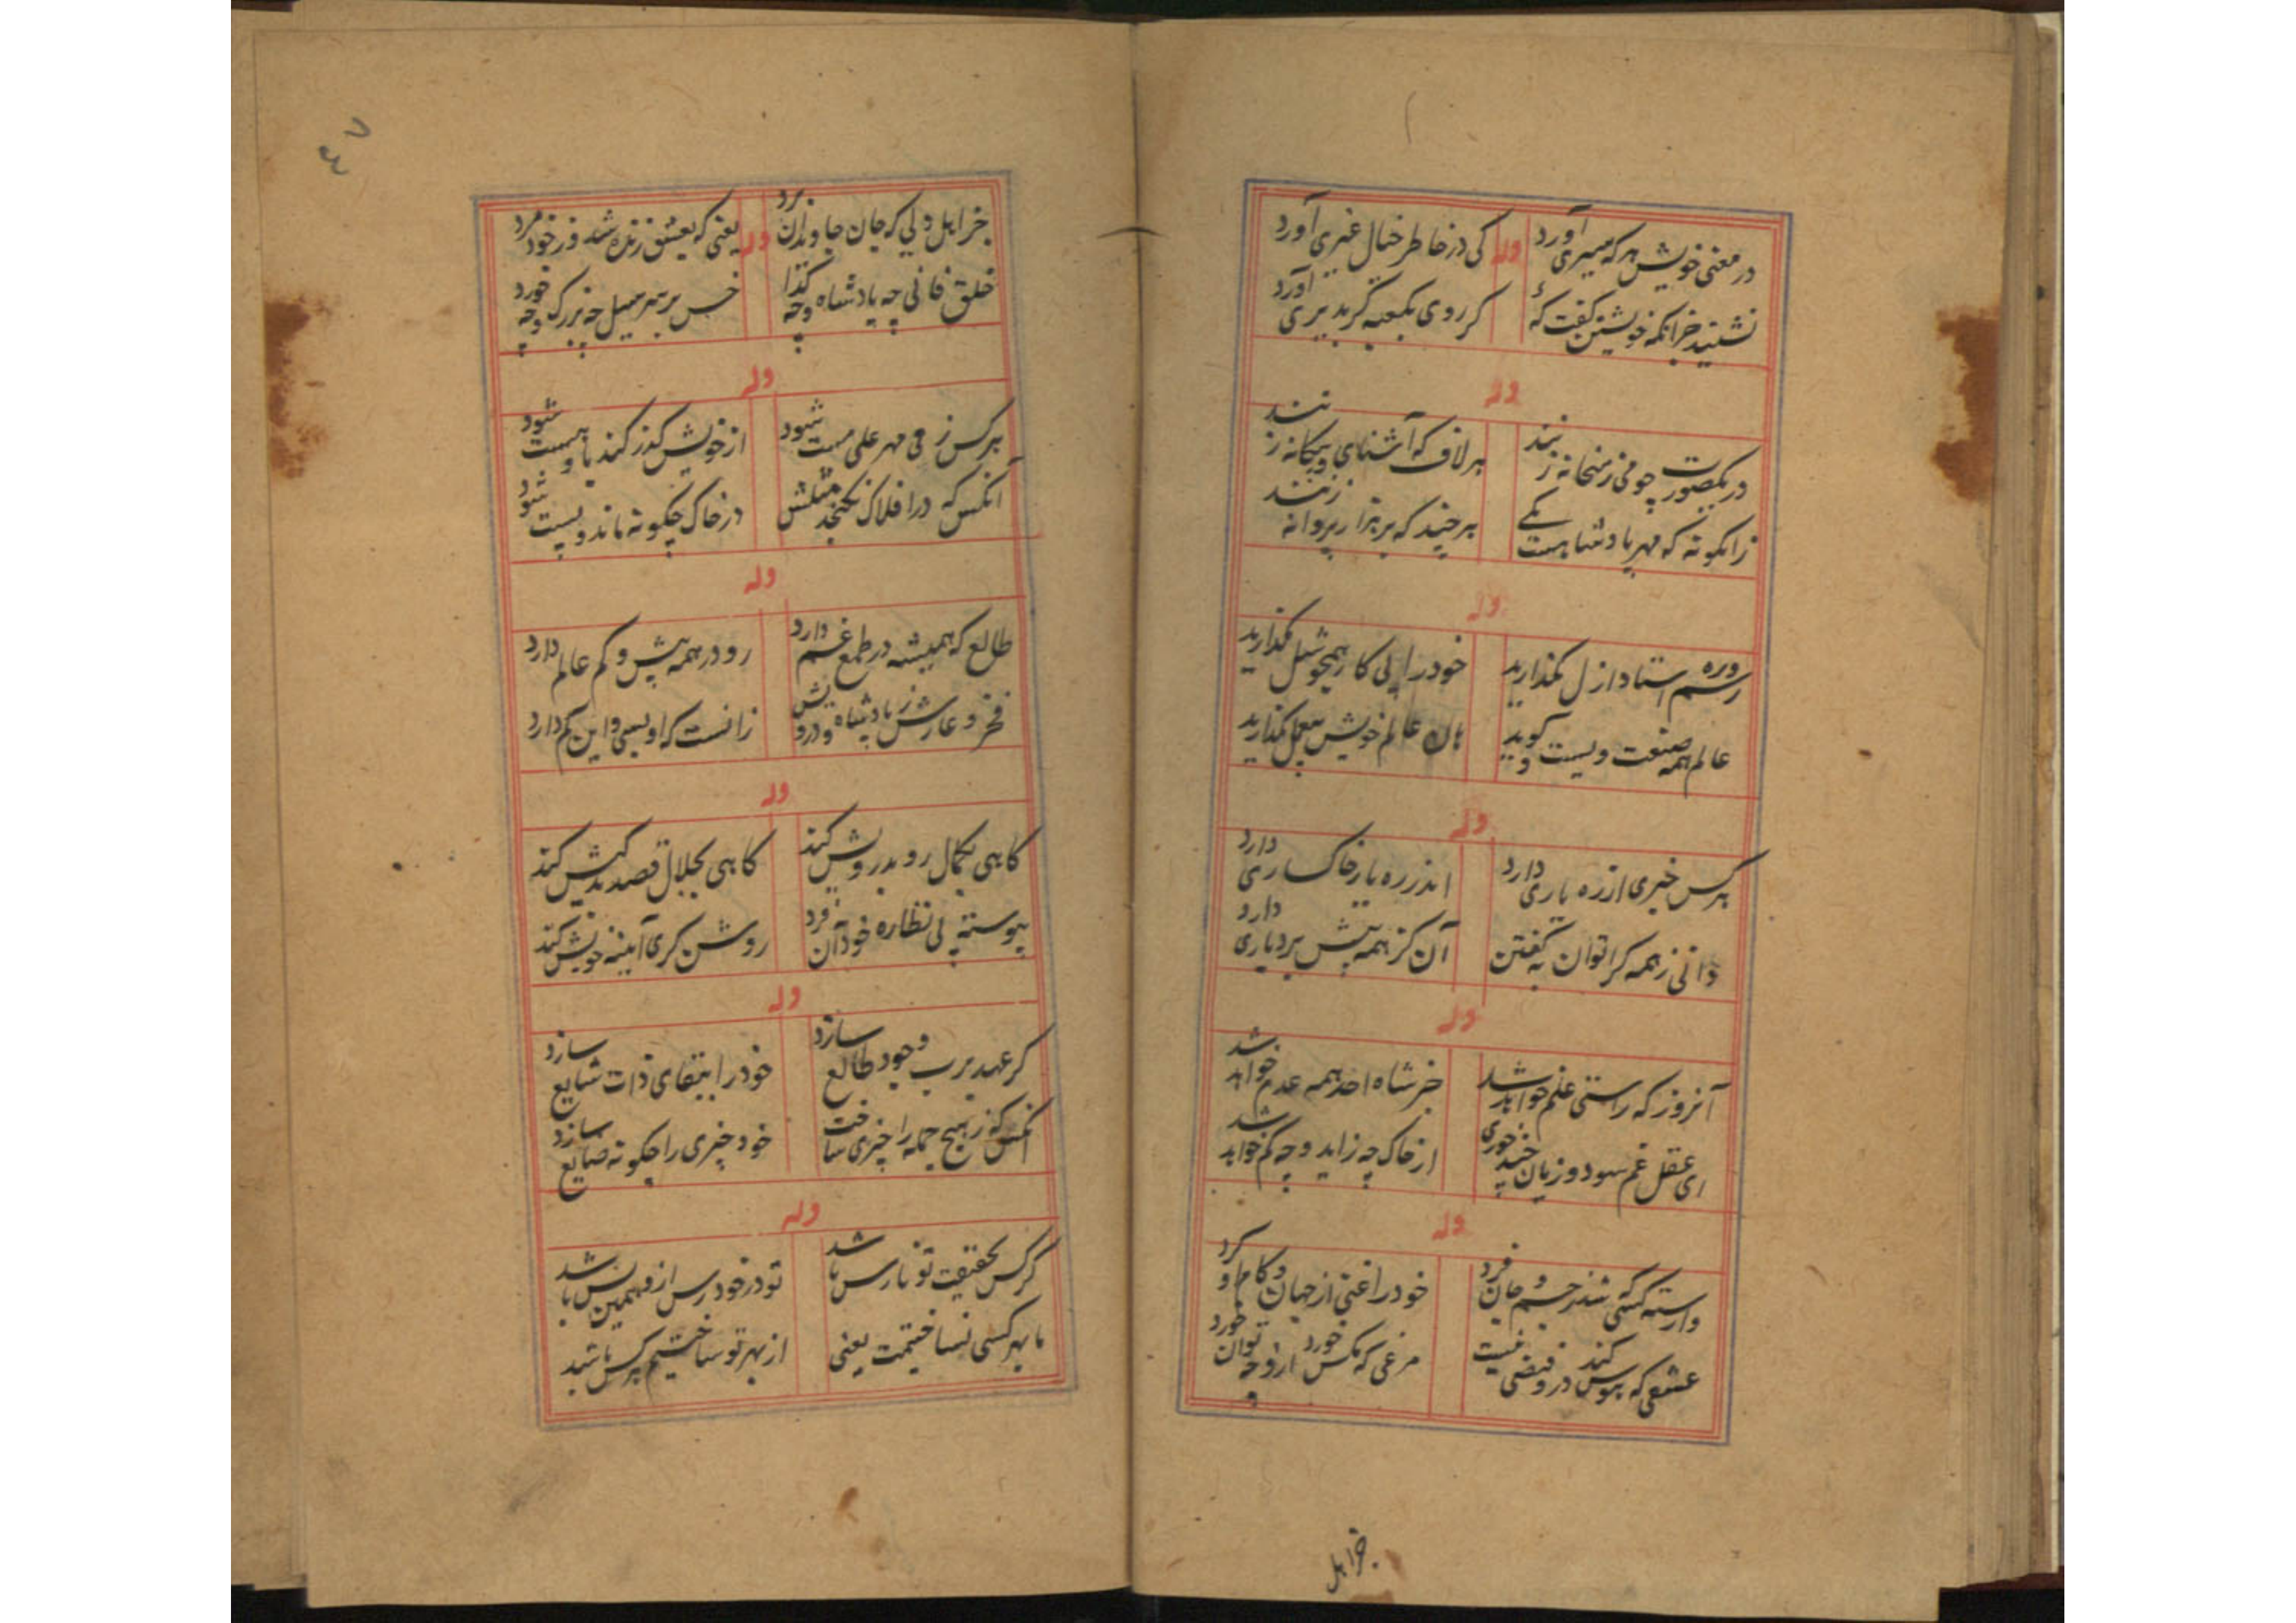 در معنی خویش هر که سیری آورد وله کی در خاطر خیال غیری آورد
نشنید خبر آنکه خویشتن گفت که کر روی بکعبه کر بدیری آورد
وله
در یکصورت چو می ز میخانه زنند هر لاف که آشنای و بیگانه زنند
زانگونه که مهر پادشاهست یکی هر چند که بر هزار پروانه زنند
وله
رسم و ره استاد ازل مگذارید خود را بی کار همچو شل مگذارید
عالم همه صنعت و لیست و گوید هان عالم خویش بی عمل مگذارید
وله
هر کس خبری از ره یاری دارد اندر ره یار خاکساری دارد
دانی ز همه کرا توان به گفتن آن کز همه پیش بردباری دارد
وله
آنروز که راستی علم خواهد شد خبر شاه احد همه عدم خواهد شد
ای عقل غم سود و زیان چند خوری از خاک چه زاید و چه کم خواهد شد
وله
وارسته کسی شد ز جسم و جان فرد خود را غنی از جهان و کام او کرد
عشقی که هوس کند درو فیضی نیست مرغی که مکس خورد ازو چه توان خورد
خبر اهل
۴۷
خبر اهل دلی که جان جاودان برد وله یعنی که بعشق زنده شد در خود مرد
خلق فانی چه پادشاه و چه گدا خس بر سر سیل چه بزرگ و چه خورد
وله
هر کس ز می مهر علی مست شود از خویش گذر کند باو هست شود
آنکس که در افلاک نگنجد مثلش در خاک چگونه ماند و پست شود
وله
طالع که همیشه در طمع غم دارد رو در همه بیش و کم عالم دارد
فخر و عارش ز پادشاه و درویش زانست که او بسی و این کم دارد
وله
گاهی بکمال رو بدرویش کند گاهی بجلال قصد بدکیش کند
پیوسته پی نظاره خود آن فرد روشن گری آیینه خویش کند
وله
کر عهد برب وجود طالع سازد خود را ببقای ذات شایع سازد
آنکس که ز هیچ جمله را چیزی ساخت خود چیزی را چگونه ضایع سازد
وله
کر کس بحقیقت تو نارس باشد تو در خود رس ازو همین بس باشد
ما بهر کسی نساختیمت یعنی از بهر تو ساختیم هر کس باشد